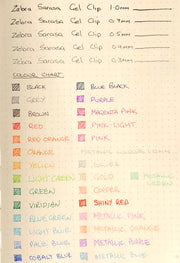 Zebra Sarasa Gel Clip 1.0mm
Zebra Sarasa Gel Clip 0.7mm
Zebra Sarasa Gel Clip 0.5mm
Zebra Sarasa Gel Clip 0.4mm
Zebra Sarasa Gel Clip 0.3mm
COLOUR CHART
BLACK BLUE BLACK
GREY PURPLE
BROWN MAGENTA PINK
RED PINK LIGHT
RED ORANGE PINK
ORANGE
YELLOW SILVER
LIGHT GREEN GOLD METALLIC
GREEN COPPER
VIRIDIAN SHINY RED
BLUE GREEN METALLIC PINK
LIGHT BLUE METALLIC ORANGE
PALE BLUE METALLIC PURPLE
COBALT BLUE METALLIC BLUE